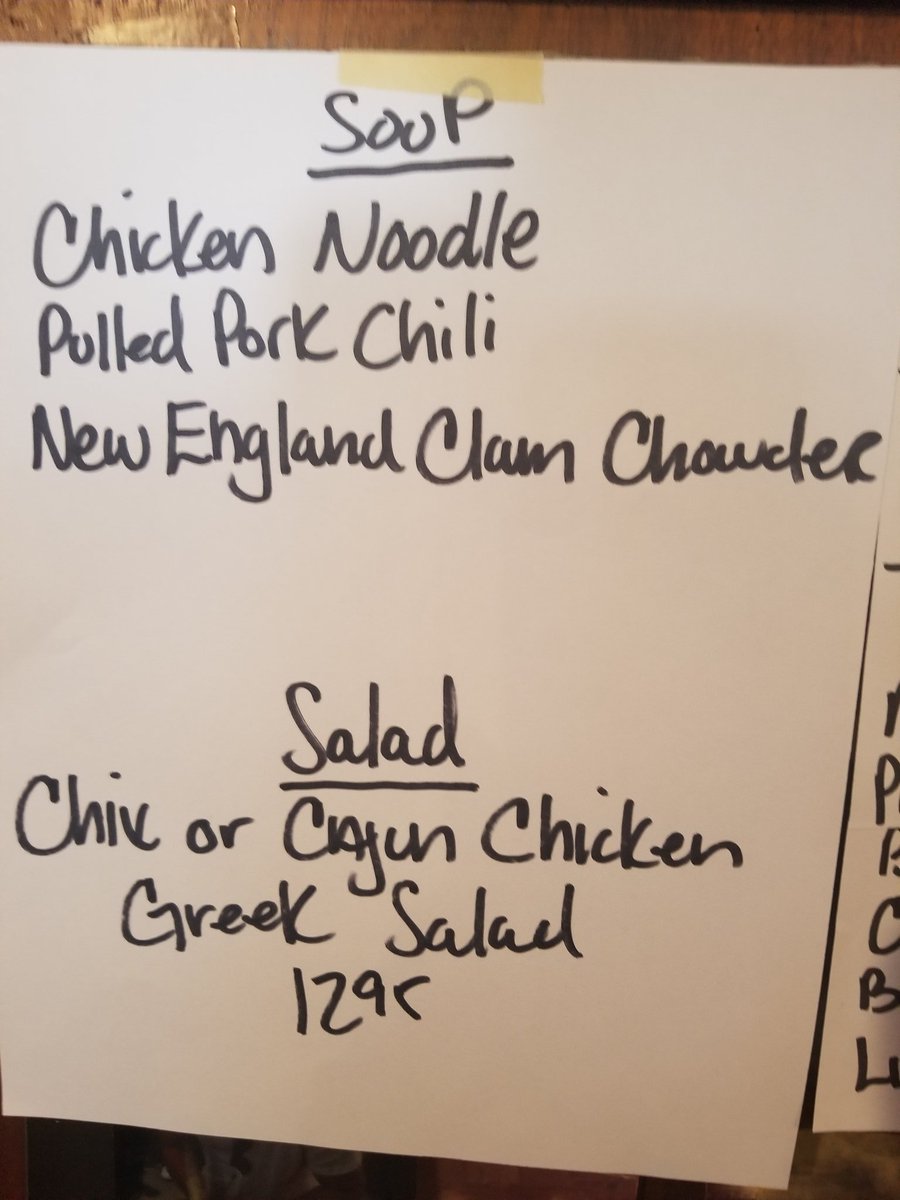 SouP
Chicken Noodle
Pulled Pork Chili
New England Clam Chowder
Salad
Chic or Cajun Chicken
Greek Salad
1295
P
B
C
B
L